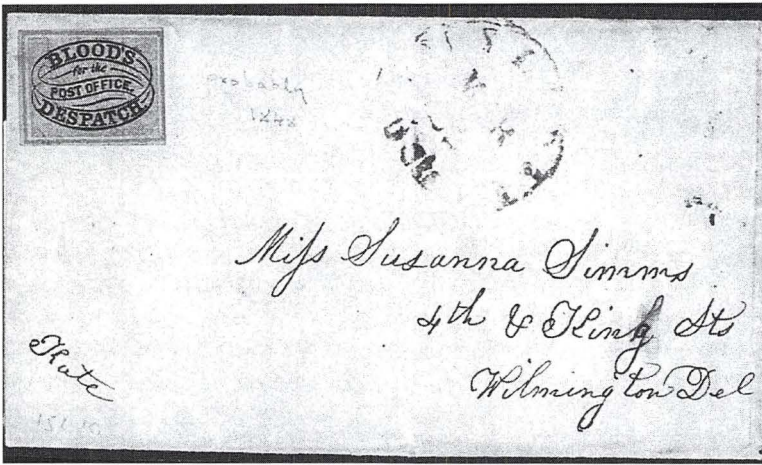 BLOOD'S
for the
POST OFFICE.
DESPATCH
probably
Miss Susanna Simms
4th & King Sts
Wilmington Del
Kate